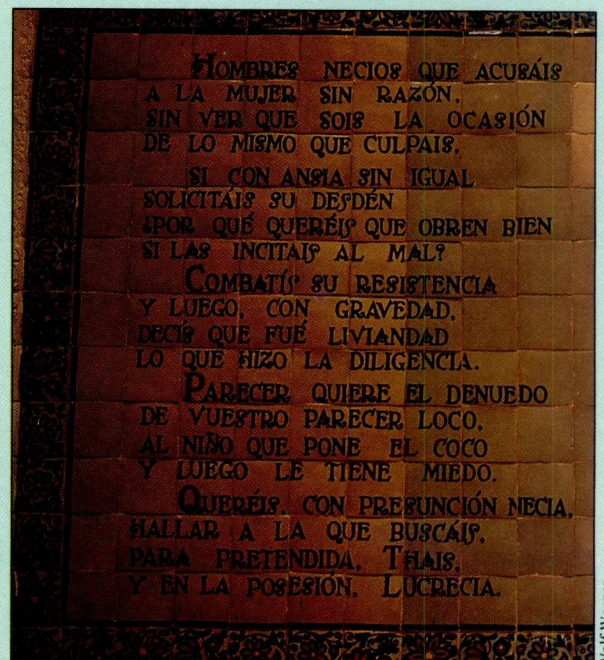 HOMBRES NECIOS QUE ACUSÁIS
A LA MUJER SIN RAZÓN,
SIN VER QUE SOIS LA OCASIÓN
DE LO MISMO QUE CULPÁIS.
SI CON ANSIA SIN IGUAL
SOLICITÁIS SU DESDÉN
¿POR QUÉ QUERÉIS QUE OBREN BIEN
SI LAS INCITAIS AL MAL?
COMBATÍS SU RESISTENCIA
Y LUEGO, CON GRAVEDAD,
DECÍS QUE FUÉ LIVIANDAD
LO QUE HIZO LA DILIGENCIA.
PARECER QUIERE EL DENUEDO
DE VUESTRO PARECER LOCO,
AL NIÑO QUE PONE EL COCO
Y LUEGO LE TIENE MIEDO.
QUERÉIS, CON PRESUNCIÓN NECIA,
HALLAR A LA QUE BUSCÁIS,
PARA PRETENDIDA, THAIS,
Y EN LA POSESIÓN, LUCRECIA.